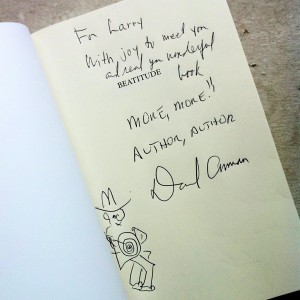 For Larry
With joy to meet you
and read you wonderful
BEATITUDE book
MORE, MORE!!
AUTHOR, AUTHOR
David Amram